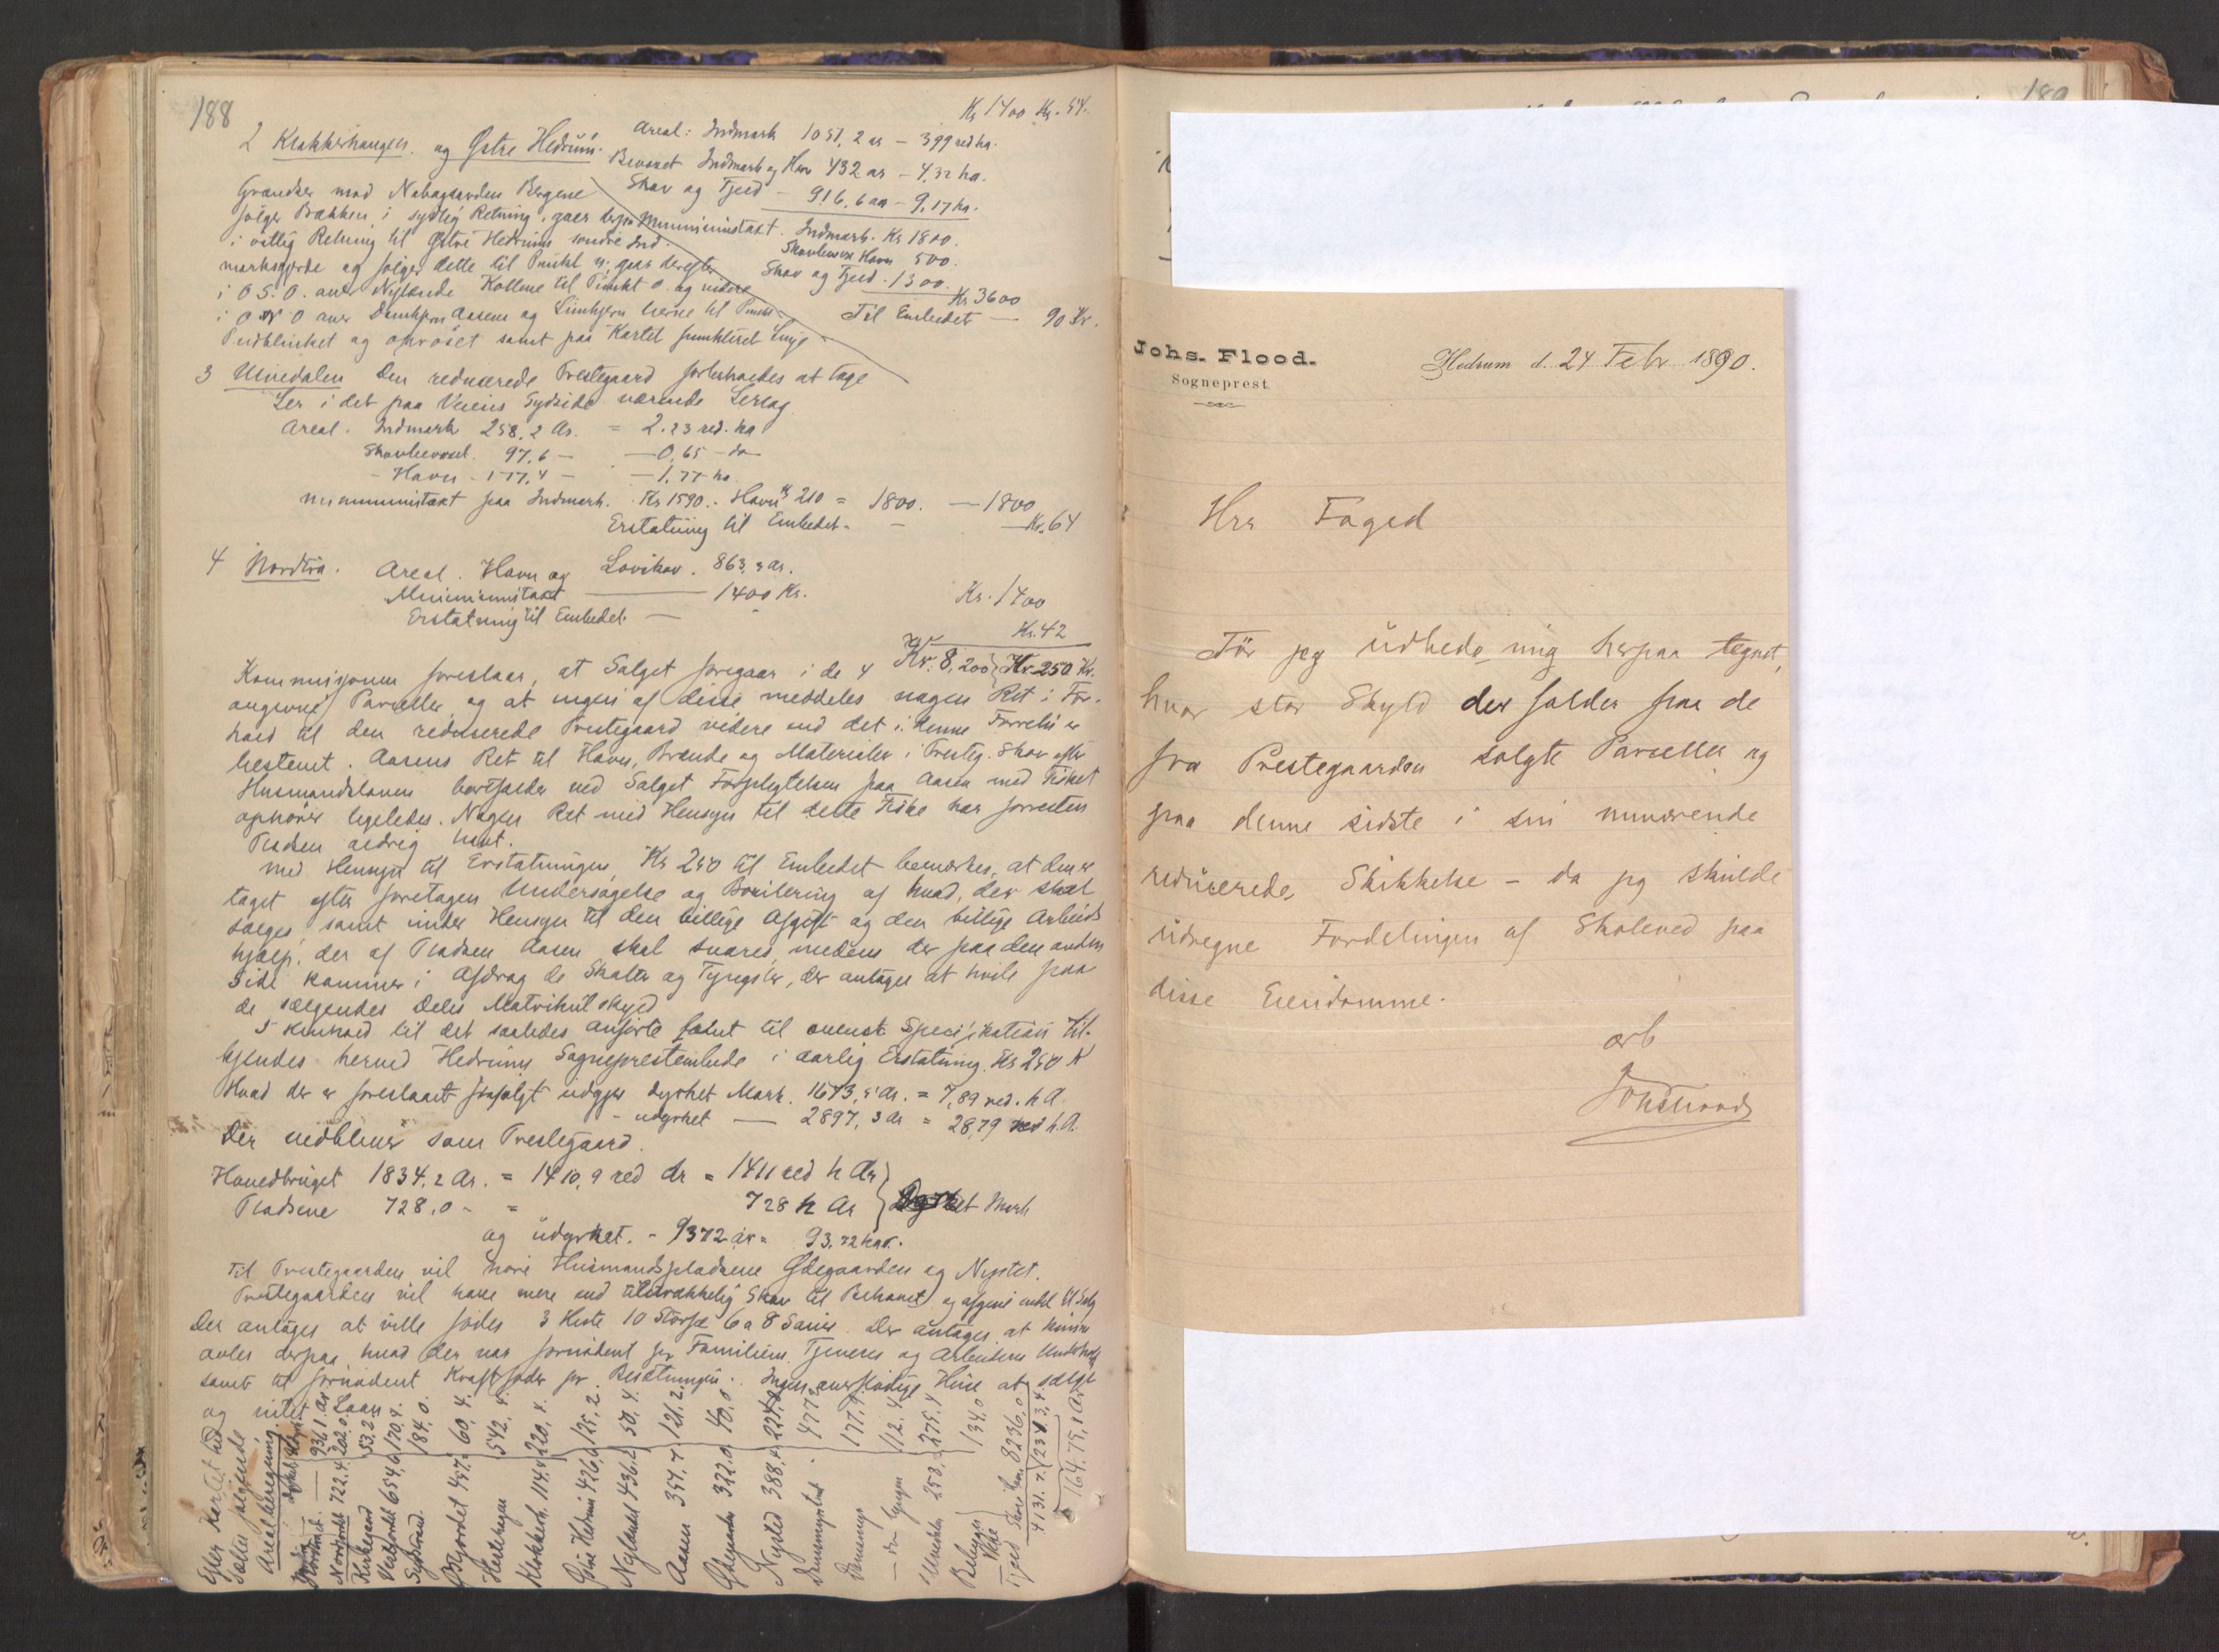 188
Kr 1400 Kr. 54.
2 Klokkerhaugen og Østre Hedrum.
Areal: Indmark 1051,2 ar – 399 red ha.
Bevoxet Indmark og Havn 432 ar – 4,32 ha.
Skov og Fjeld – 916,6 ar – 9,17 ha.
Grændser mod Nabogaarden Bergene
følger Bækken i sydlig Retning, gaar derpaa
i østlig Retning til Østre Hedrums søndre Ind-
marksgjerde og følger dette til Punkt n, gaar derefter
i O.S.O. over Nylands Kollene til Punkt o. og videre
i O N O over Aasen og herne til Punkt
og samt paa Kartet punkteret Linje
Minimumstakt. Indmark. Kr 1800.
Skovbevox Havn 500.
Skov og Fjeld. 1300.
Kr 3600
Til Embedet — 90 Kr.
3 Unnedalen Den reducerede Prestegaard forbeholdes at tage
Ler i det paa Veiens Sydside værende Lertag
Areal. Indmark 258,2 Ar. = 2.23 red. ha
Skovbevoxet. 97,6 – – 0,65 – do
– Havn – 177,4 – – 1,77 ha
Minimumstakt paa Indmark. Kr 1590. Havn Kr 210 = 1800. — 1800
Erstatning til Embedet – — Kr. 64
4 Nordlia. Areal. Havn og Løvskov. 863,3 ar.
Minimumstakt — 1400 Kr. Kr. 1400
Erstatning til Embedet. — Kr. 42
Kr. 8,200 Kr 250 Kr.
Kommisjonen foreslaar, at Salget foregaar i de 4
angivne Parceller og at ingen af disse meddeles nogen Ret i For-
hold til den reducerede Prestegaard videre end det i denne Forretn er
bestemt. Aasens Ret til Havn, Brænde og Materialer i Presteg. Skov efter
Husmandsloven bortfalder ved Salget. Forpligtelsen paa Aasen med Fisket
ophører ligeledes. Nogen Ret med Hensyn til dette Fiske har forresten
Pladsen aldrig havt.
Med Hensyn til Erstatningen, Kr 250 til Embedet bemærkes, at den er
taget efter foretagen Undersøgelse og Bonitering af hvad, der skal
sælges samt under Hensyn til den billige Afgift og den billige Arbeids
hjælp, der af Pladsen Aasen skal svares, medens der paa den anden
Side kommer i Afdrag de Skatter og Tyngsler, der antages at hvile paa
de sælgendes Deles Matrikulskyld
I Henhold til det saaledes anførte samt til ovenst. Specifikation til-
kjendes herved Hedrums Sogneprestembede i aarlig Erstatning Kr 250 K
Hvad der er foreslaaet frasolgt udgjør dyrket Mark. 1673,5 Ar. = 7,89 red. h A.
– udyrket — 2897,3 Ar = 28,79 red h.A.
Der nedbliver som Prestegaard.
Hovedbruget 1834,2 Ar. = 1410,9 red Ar = 1411 red h Ar
Pladsene 728,0 – = 728 h Ar
Dyrket Mark
og udyrket. – 9372 ar = 93,72 har.
Til Prestegaarden vil høre Husmandspladsene Ødegaarden og Nystet.
Prestegaarden vil have mere end tilstrækkelig Skov til Behovet og afgive endel til Salg
Der antages at ville fødes 3 Heste 10 Storfæ 6 a 8 Sauer. Der antages at kunne
avles derpaa, hvad der var fornødent for Familiens Tjeneres og Arbeideres Underhold
samt til fornødent Kraftfoder for Besætningen. Ingen overflødige Huse at sælge
og intet Laan
Efter Kartet hid
sættes følgende
Arealberegning
Nordlund – 936,1 ar
Nordjordet 722,4 202,0
Kirkegaard 53,2
Vestjordet 654,6 170,4.
Sydstrand. 184,0.
Østjordet 457,2 60,4.
Hestehagen 542,4.
Klokkerh. 114,4 220,4.
Østre Hedrum 426,6 125,2.
Nyland 436,2 50,4.
Aasen 357,7 121,2.
Ødegaarden 322,0 40,0
Nysted 388,4 224,8
477,2
Damengs 177,9
– 112,4
Unnedalen 258,2 275,4
134,0
Fjeld Skov Havn 8236,0
4131.7. 12343,4.
164.75,1 Ar
189
Johs. Flood.
Sogneprest.
Hedrum d. 24 Febr 1890.
Hrr Foged
Tør jeg udbede mig herpaa tegnet,
hvor stor Skyld der falder paa de
fra Prestegaarden solgte Parceller og
paa denne sidste i sin nuværende
reducerede Skikkelse – da jeg skulde
udregne Fordelingen af Skoleved paa
disse Eiendomme.
ærb
Johs Flood